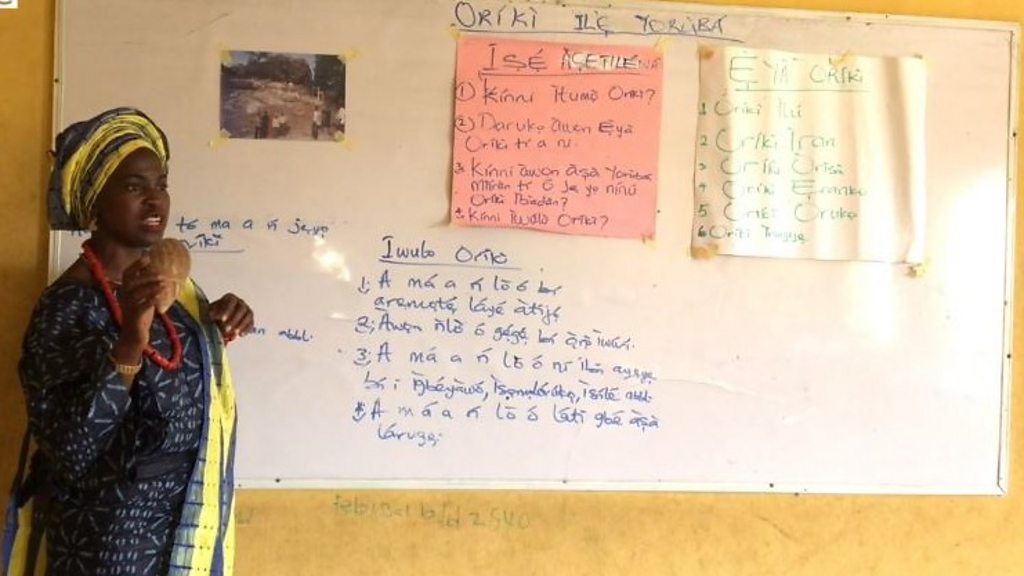 ORÍKÌ ILẸ̀ YORÙBÁ
IṢẸ́ ÀṢETILEWÁ
1) Kínní Ìtumọ̀ Oríkì?
2) Darukọ àwọn Ẹ̀yà
Oríkì tí a ní.
3. Kínní àwọn àṣà Yorùbá
Mííràn tí ó jẹ yọ nínú
Oríkì Ìbàdàn?
4. Kínní Ìwúlò Oríkì?
Ẹ̀YÀ ORÍKÌ
1 Oríkì Ìlú
2 Oríkì Ìran
3 Oríkì Òrìṣà
4 Oríkì Ẹranko
5 Oríkì Orúkọ
6 Oríkì
tó ma a ń jẹyọ
oríkì
Ìwúlò Oríkì
1; A má a ń lò ó bí
láyé àtijọ́
2; Àwọn ń lò ó gẹ́gẹ́ bí
3; A má a ń lò ó ní ibi ayẹyẹ
bí i Ìgbéyàwó, Ìsọmọlórúkọ, Ìṣílé abbl.
4; A má a ń lò ó láti gbé àṣà
lárugẹ.
abbl.